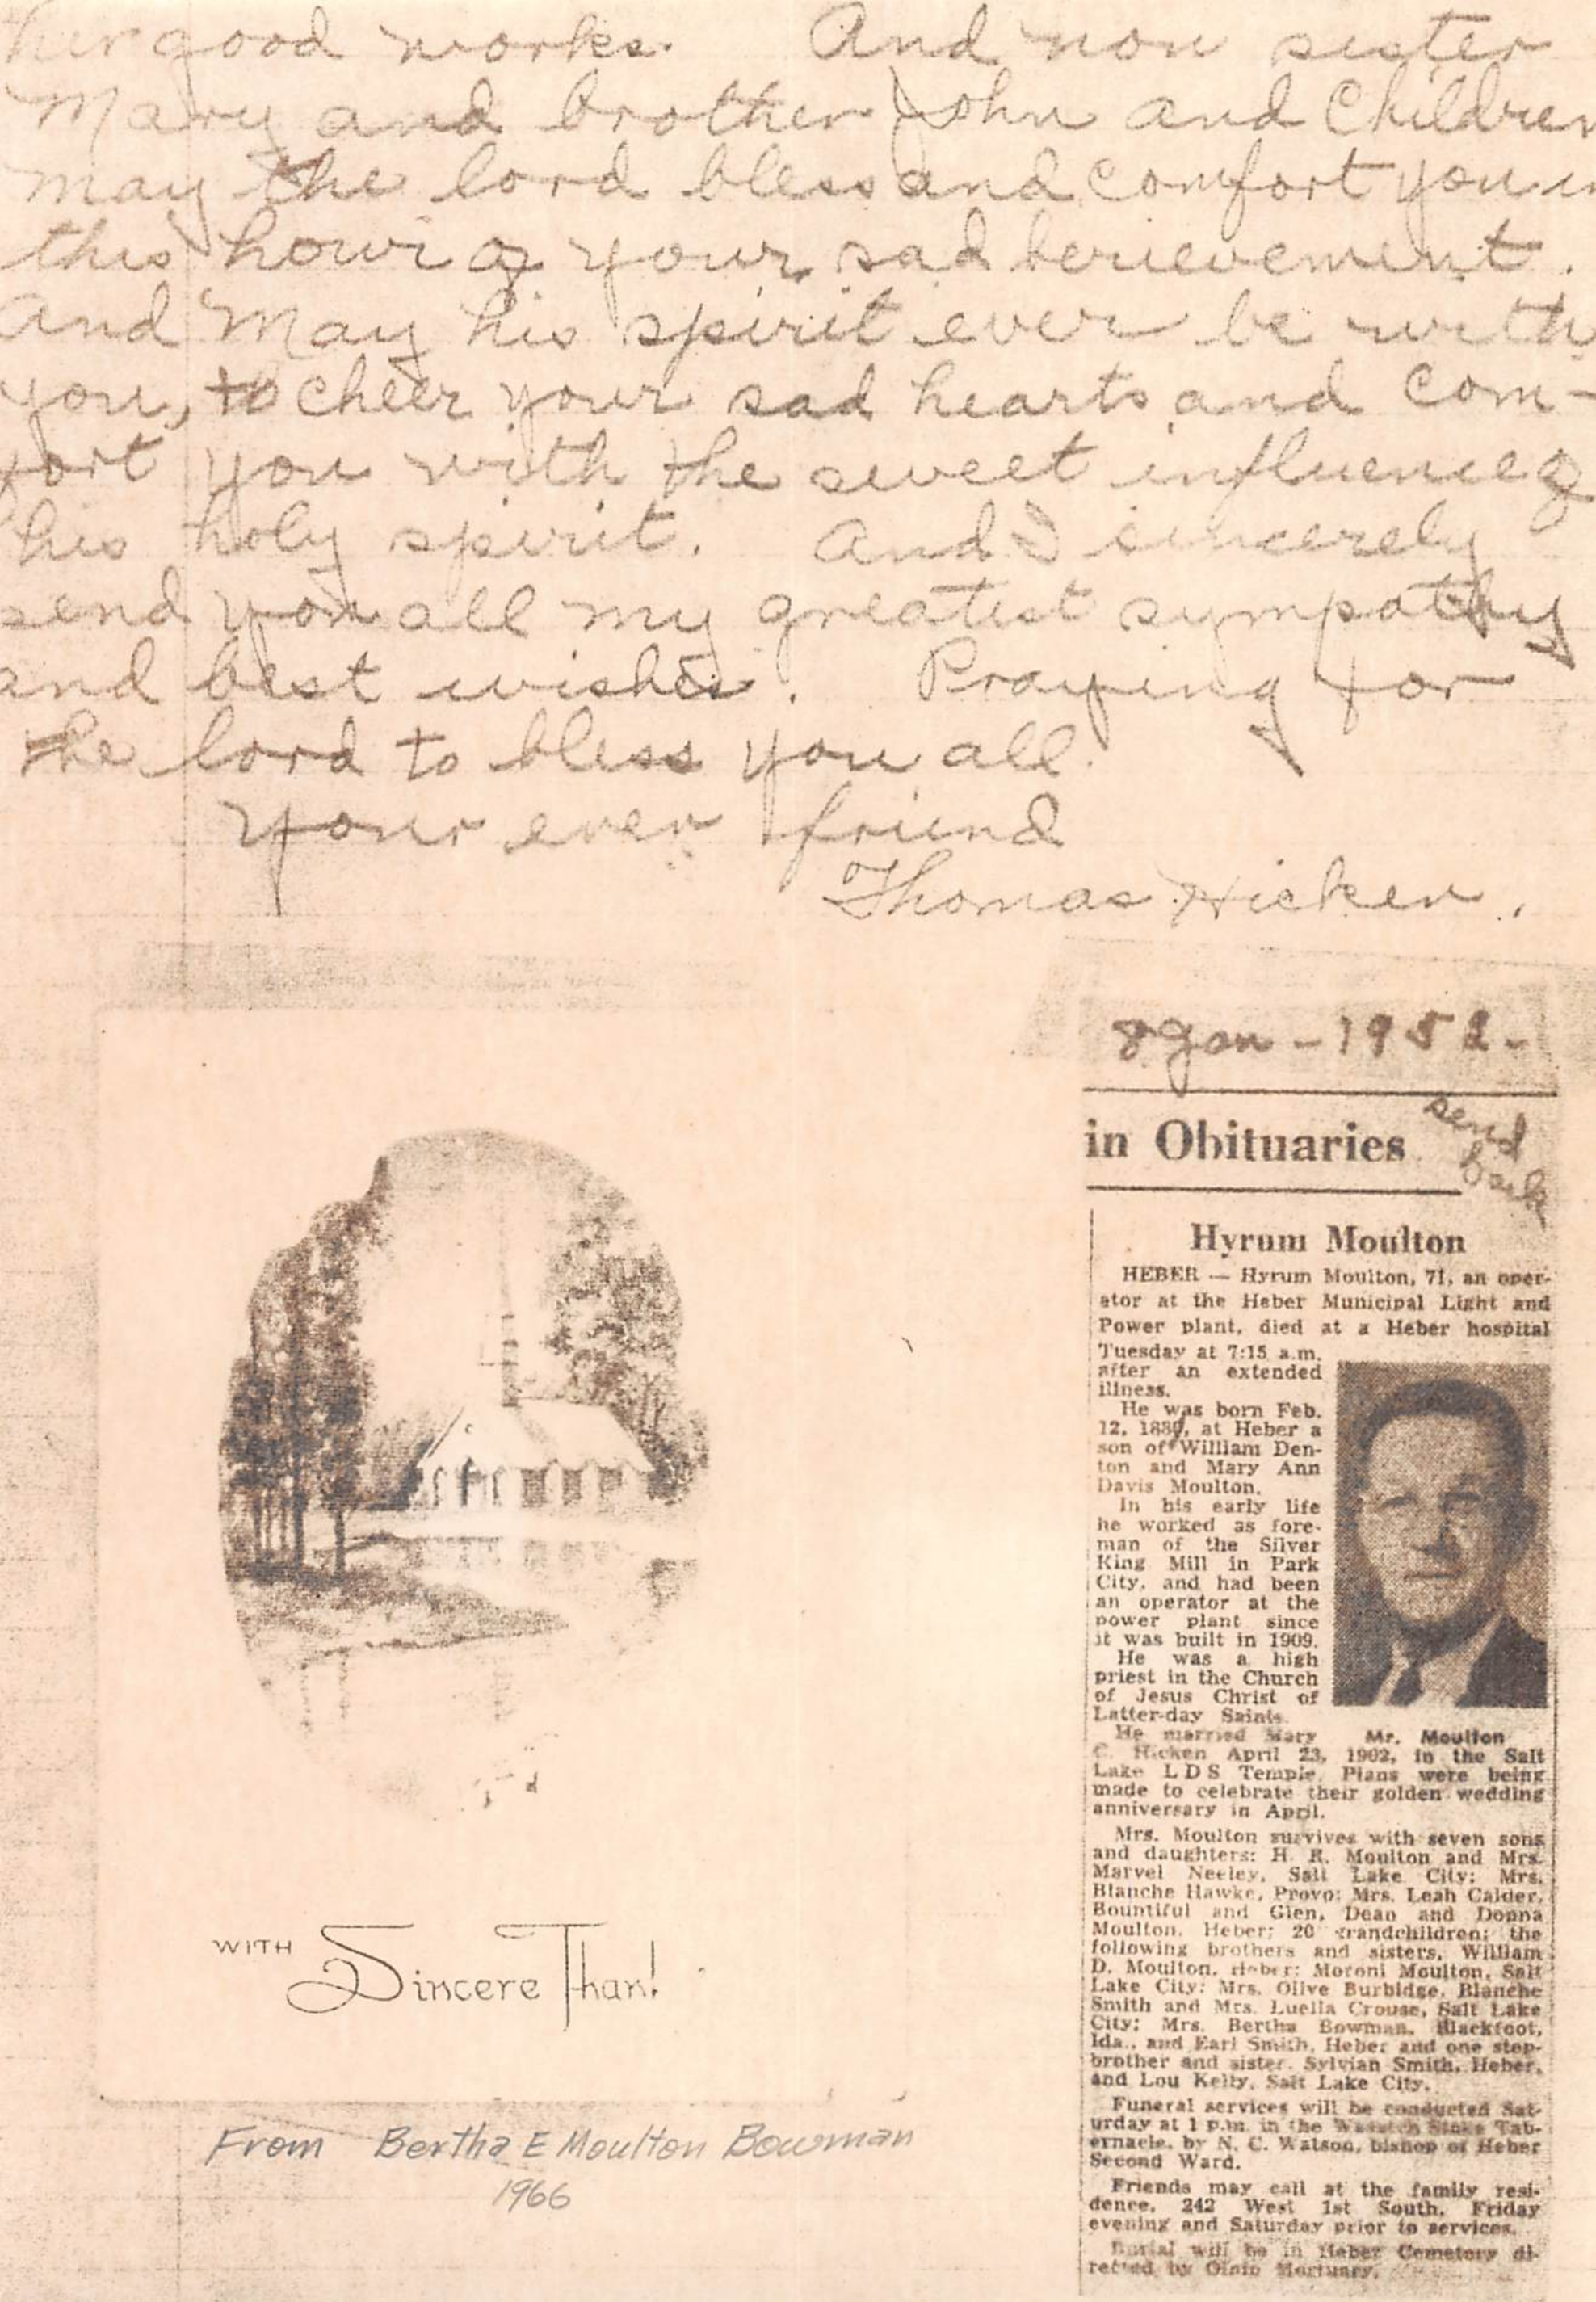 her good works. And now sister
Mary and brother John and Children
may the lord bless and comfort you in
this howr of your sad berievement.
And May his spirit ever be with
you, to cheer your sad hearts and com-
fort you with the sweet influence of
his holy spirit. And I sincerely
send you all my greatest sympathy
and best wishes. Praying for
the lord to bless you all.
your ever friend
Thomas Hicken.
WITH Sincere Than
From Bertha E Moulton Bowman
1966
8 Jan - 1952 -
in Obituaries
send
back
Hyrum Moulton
HEBER — Hyrum Moulton, 71, an oper-
ator at the Heber Municipal Light and
Power plant, died at a Heber hospital
Tuesday at 7:15 a.m.
after an extended
illness.
He was born Feb.
12, 1880, at Heber a
son of William Den-
ton and Mary Ann
Davis Moulton.
In his early life
he worked as fore-
man of the Silver
King Mill in Park
City, and had been
an operator at the
power plant since
it was built in 1909.
He was a high
priest in the Church
of Jesus Christ of
Latter-day Saints.
Mr. Moulton
He married Mary
C. Hicken April 23, 1902, in the Salt
Lake LDS Temple. Plans were being
made to celebrate their golden wedding
anniversary in April.
Mrs. Moulton survives with seven sons
and daughters: H. R. Moulton and Mrs.
Marvel Neeley, Salt Lake City; Mrs.
Blanche Hawke, Provo; Mrs. Leah Calder,
Bountiful and Glen, Dean and Donna
Moulton, Heber; 20 grandchildren; the
following brothers and sisters, William
D. Moulton, Heber; Moroni Moulton, Salt
Lake City; Mrs. Olive Burbidge, Blanche
Smith and Mrs. Luella Crouse, Salt Lake
City; Mrs. Bertha Bowman, Blackfoot,
Ida., and Earl Smith, Heber and one step-
brother and sister, Sylvian Smith, Heber,
and Lou Kelly, Salt Lake City.
Funeral services will be conducted Sat-
urday at 1 p.m. in the Wasatch Stake Tab-
ernacle, by N. C. Watson, bishop of Heber
Second Ward.
Friends may call at the family resi-
dence, 242 West 1st South, Friday
evening and Saturday prior to services.
Burial will be in Heber Cemetery di-
rected by Olpin Mortuary.